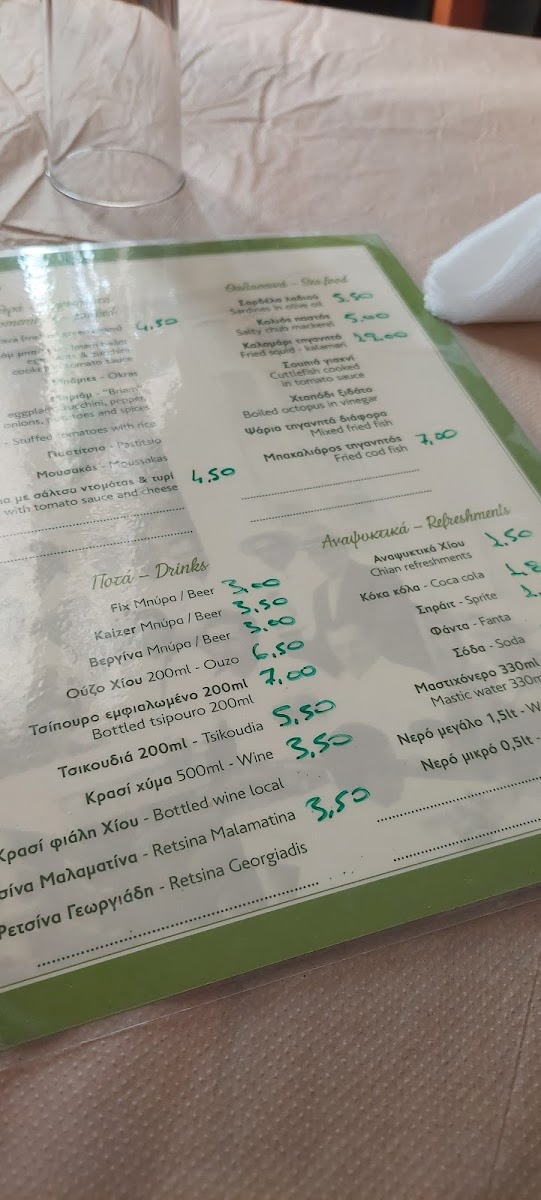 4,50
Μπάμιες - Okras
eggplant, zucchini, pepper,
onions, potatoes and spices
- Stuffed tomatoes with rice
Παστίτσιο - Pastitsio
Μουσακάς - Moussakas
με σάλτσα ντομάτας & τυρί 4,50
with tomato sauce and cheese
Θαλασσινά – Sea food
Σαρδέλα λαδιού 5,50
Sardines in olive oil
Κολιός παστός 5,00
Salty chub mackerel
Καλαμάρι τηγανητό
Fried squid - kalamari
Σουπιά γιαχνί
Cuttlefish cooked
in tomato sauce
Χταπόδι ξιδάτο
Boiled octopus in vinegar
Ψάρια τηγανητά διάφορα
Mixed fried fish
Μπακαλιάρος τηγανητός 7,00
Fried cod fish
Ποτά – Drinks
Fix Μπύρα / Beer 3,00
Kaizer Μπύρα / Beer 3,50
Βεργίνα Μπύρα / Beer 3,00
Ούζο Χίου 200ml - Ouzo 6,50
Τσίπουρο εμφιαλωμένο 200ml 7,00
Bottled tsipouro 200ml
Τσικουδιά 200ml - Tsikoudia 5,50
Κρασί χύμα 500ml - Wine 3,50
Κρασί φιάλη Χίου - Bottled wine local
Μαλαματίνα - Retsina Malamatina 3,50
Ρετσίνα Γεωργιάδη - Retsina Georgiadis
Αναψυκτικά – Refreshments
Αναψυκτικά Χίου 1,50
Chian refreshments
Κόκα κόλα - Coca cola
Σπράιτ - Sprite
Φάντα - Fanta
Σόδα - Soda
Μαστιχόνερο 330ml
Mastic water 330m
Νερό μεγάλο 1,5lt - W
Νερό μικρό 0,5lt -